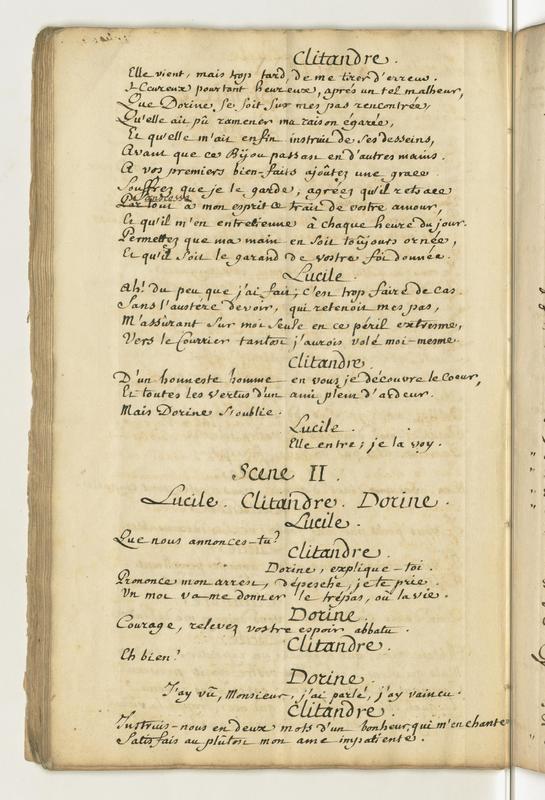 Clitandre.
Elle vient, mais trop tard, de me tirer d'erreur.
Heureux pourtant heureux, aprés un tel malheur,
Que Dorine, se soit sur mes pas rencontrée,
Qu'elle ait pû ramener ma raison égarée,
Et qu'elle m'ait enfin instruit de ses desseins,
Avant que ce Bijou passast en d'autres mains.
A vos premiers bien-faits ajoûtez une grace
Souffrez que je le garde; agréez qu'il retrace
Par tout à mon esprit ce trait de vostre amour,
Et qu'il m'en entretienne à chaque heure du jour.
Permettez que ma main en soit toûjours ornée,
Et qu'il soit le garand de vostre foi donnée.
Lucile.
Ah! du peu que j'ai fait; c'est trop faire de cas.
Sans l'austere devoir, qui retenoit mes pas,
M'assûrant sur moi seule en ce péril extresme,
Vers le Courrier tantost j'aurois volé moi-mesme.
Clitandre.
D'un honneste homme en vous je découvre le Coeur,
Et toutes les vertus d'un ami plein d'ardeur.
Mais Dorine s'oublie.
Lucile.
Elle entre; je la voy.
Scene II
Lucile. Clitandre. Dorine.
Lucile.
Que nous annonces-tu?
Clitandre.
Dorine, explique-toi.
Prononce mon arrest, dépesche, je te prie.
Un mot va me donner le trépas, où la vie.
Dorine.
Courage, relevez vostre espoir abbatu.
Clitandre.
Eh bien?
Dorine.
J'ay vû, Monsieur, j'ai parlé, j'ay vaincu.
Clitandre.
Instruis-nous en deux mots d'un bonheur qui m'enchante
Satisfais au plûtost mon ame impatiente.